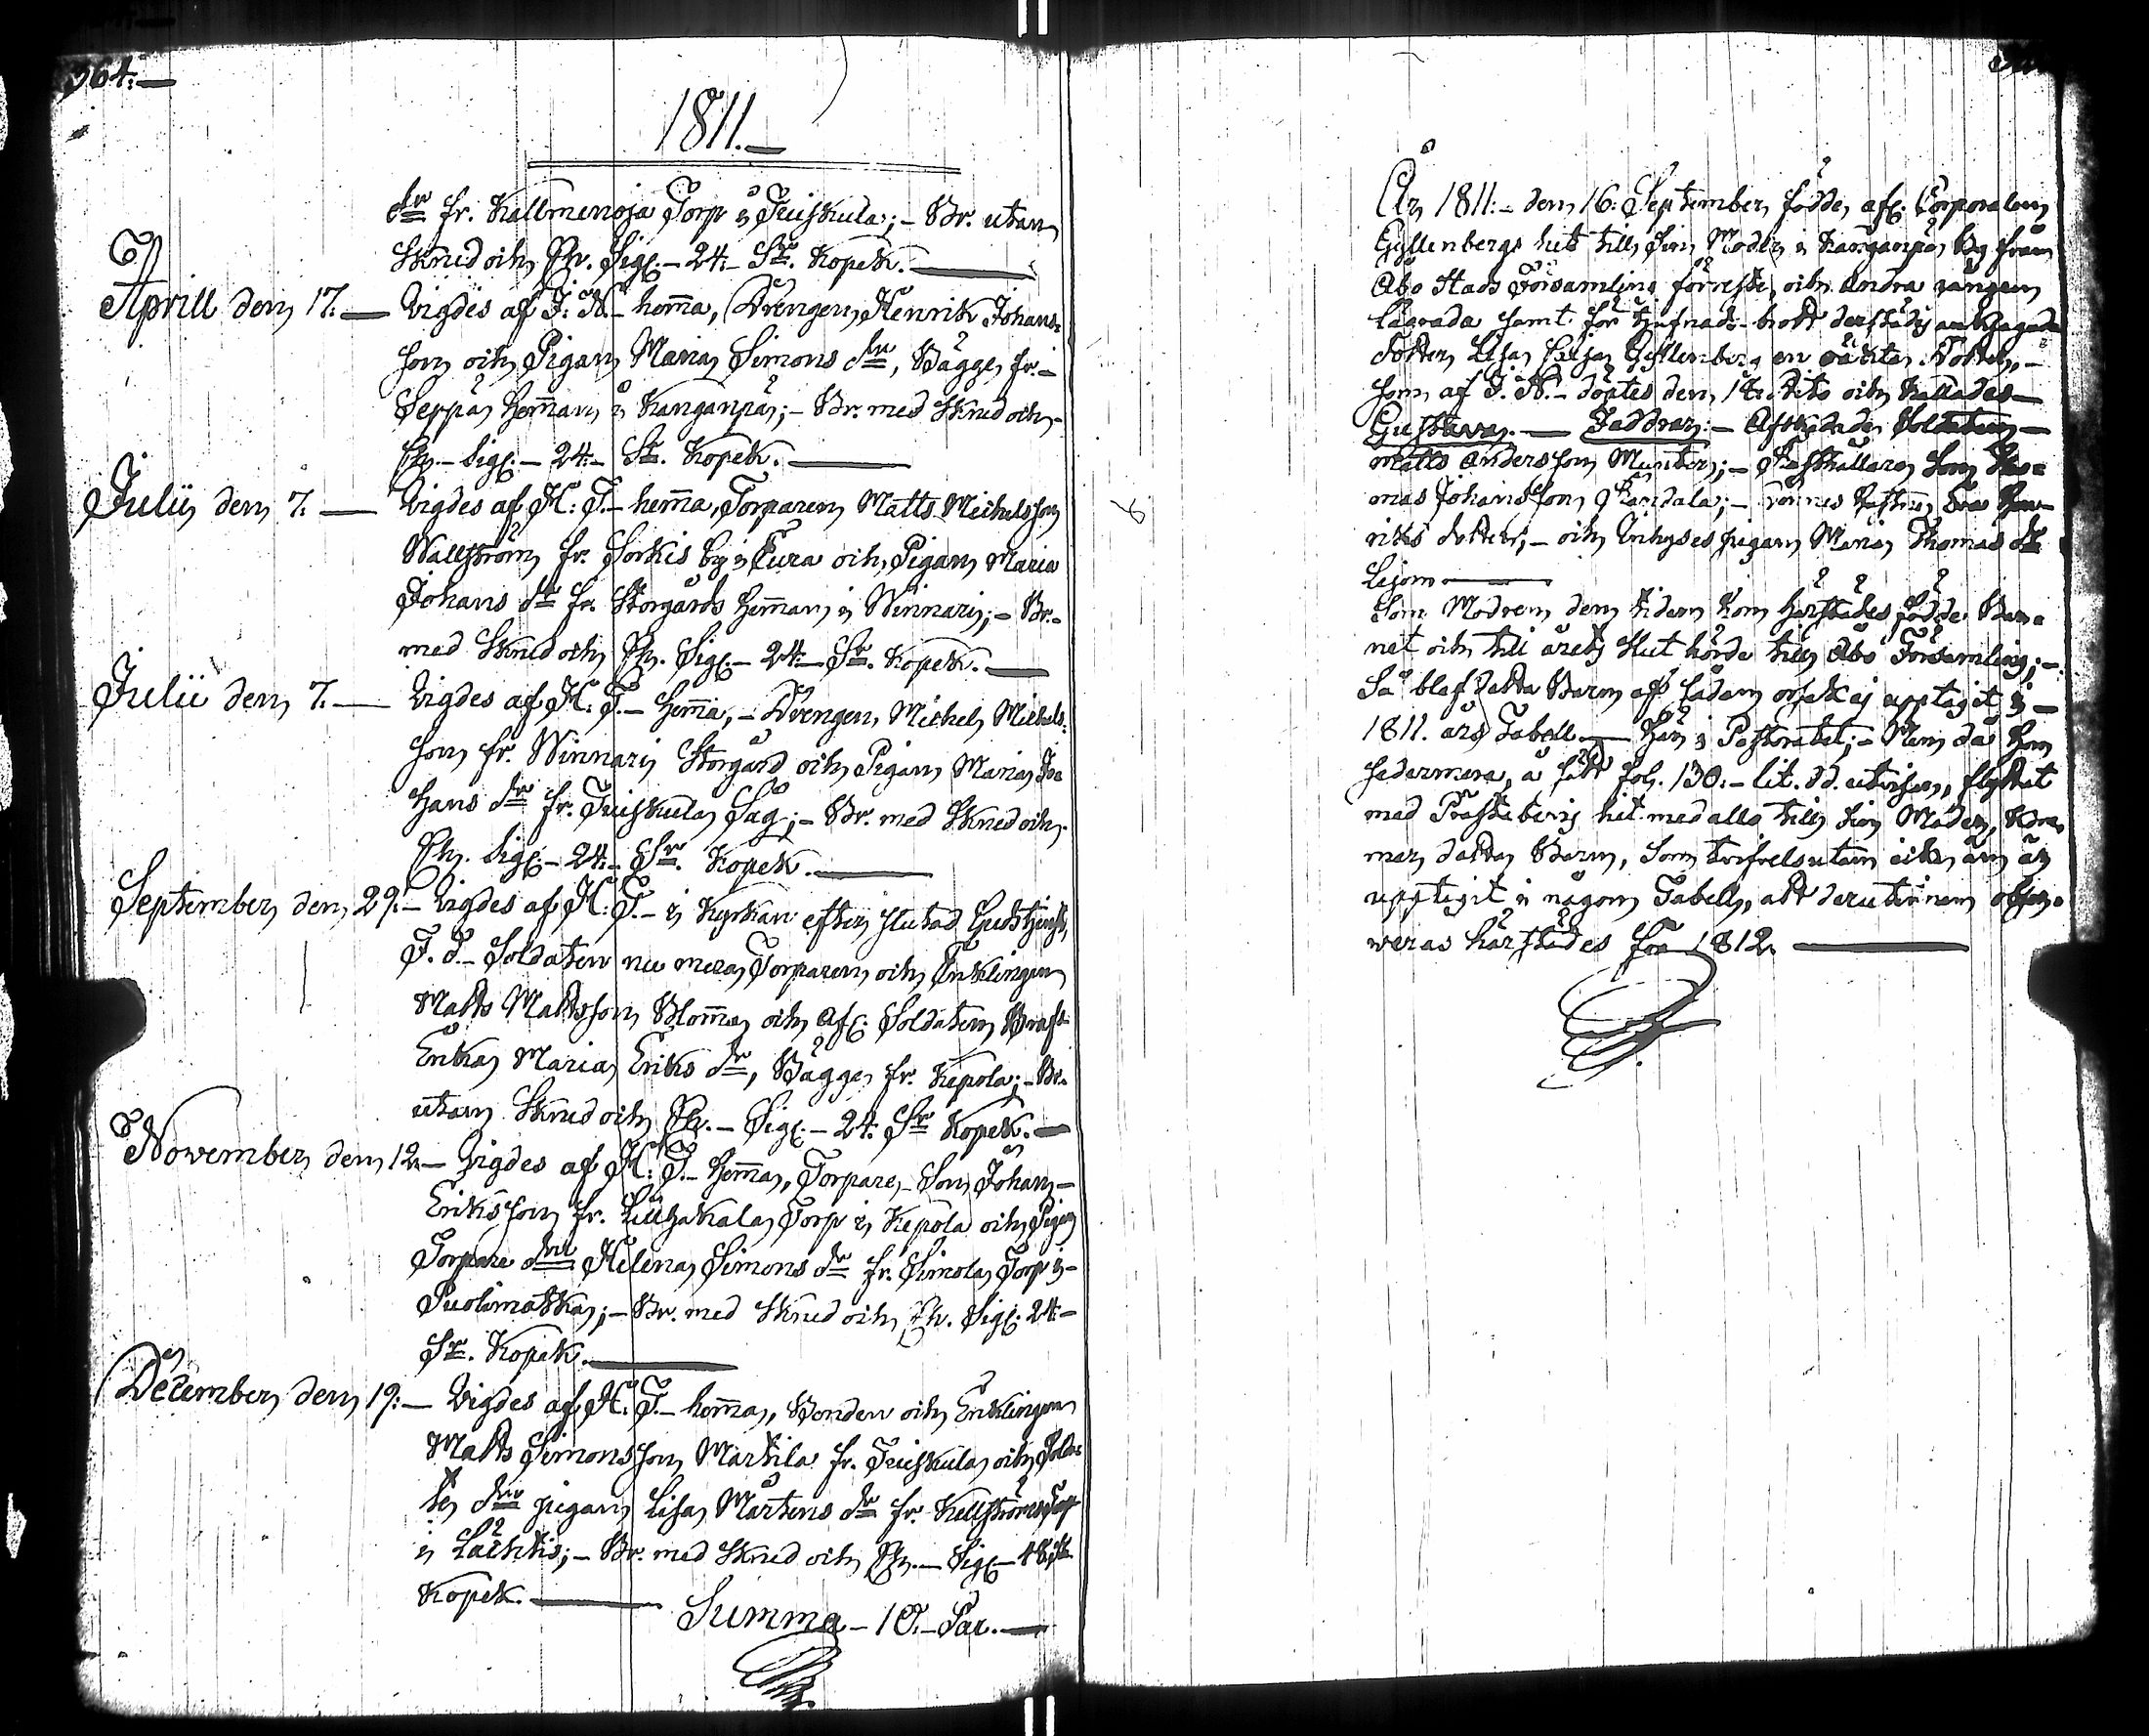 364.
1811.
dr fr. Kallmenoja Torp i Tuiskula; - Br. utan
Skrud och Ch. Sigl. - 24. - Sr. Kopek.
Aprill den 17. - Vigdes af J. N. - hema, Drengen Henrik Johans=
son och Pigan Maria Simons dr, Bägge fr. -
Seppä Heman i Kanganpä; - Br. med Skrud och -
Ch. - Sigl. - 24. - Sr. Kopek.
Julii den 7. - Vigdes af H. T. - hema, Torparen Matts Michelsson
Wallström fr. Sorkis by i Eura och Pigan Maria
Johans dr fr. Storgårds Heman i Winnari; - Br. -
med Skrud och Ch. Sigl. - 24. - Sr. Kopek.
Julii den 7. - Vigdes af H. T. - hema, - Drengen Michel Michels=
son fr. Winnari Storgård och Pigan Maria Jo=
hans dr fr. Tuiskula Såg; - Br. med Skrud och
Ch. Sigl. - 24. - Sr. Kopek.
September den 29. - Vigdes af H. T. - i Kyrkan efter slutad Gudstjenst,
F. d. - Soldaten nu mera Torparen och Enklingen
Matts Mattsson Blomma och Afl. Soldaten
Enka Maria Eriks dr, Bägge fr. Kepola; - Br.
utan Skrud och Ch. - Sigl. - 24. Sr Kopek. -
November den 12. - Vigdes af H. T. - hema, Torpare - Son Johan -
Eriksson fr. Torp i Kepola och Pigan
Torpare dr Helena Simons dr fr. Simola Torp i -
Puolimatka; - Br. med Skrud och Ch. Sigl. 24. -
Sr. Kopek.
December den 19. - Vigdes af H. T. - hema, Bonden och Enklingen
Matts Simonsson Martila fr. Tuiskula och Solda=
te dr pigan Lisa Mårtens dr fr. Kellströms Torp
i Lächtis; - Br. med Skrud och Ch. - Sigl. - 48. Sr.
Kopek.
Summa - 10. - Par.
År 1811. - den 16. September födde, afl. Corporalen
Gyllenbergs hit till sin Moder i Kanganpä By från
Åbo Stads Församling förreste, och andra gången
lägrada samt för tjufnads-brott derstädes anklagade
dotter Lisa Gyllenberg en oäkta Dotter, -
som af J. N. - döptes den 18. dito och kallades -
Gustava. - Faddrar: - Afskedade Soldaten -
Matts Andersson Munter; - Rusthållare Son Tho=
mas Johansson Randala; - dennes Hustru Eva Hen=
riks dotter; - och Inhyses pigan Maria Thomas dr
Lejon
Som Modren den tiden hon härstädes födde Bar=
net och till årets slut hörde till Åbo Församling; -
Så blef detta Barn af sådan orsak ej upptagit i -
1811. års Tabell - Här i Pastoratet; - Men då hon
sedermera, å sätt fol. 130. - lit. dd. utvisar, flyttat
med Prästebevis hit med allo till sin Moder, kom=
mer detta Barn, som tvifvelsutan icke än är
upptagit i någon Tabell, att derutinnan obser=
veras härstädes för 1812.